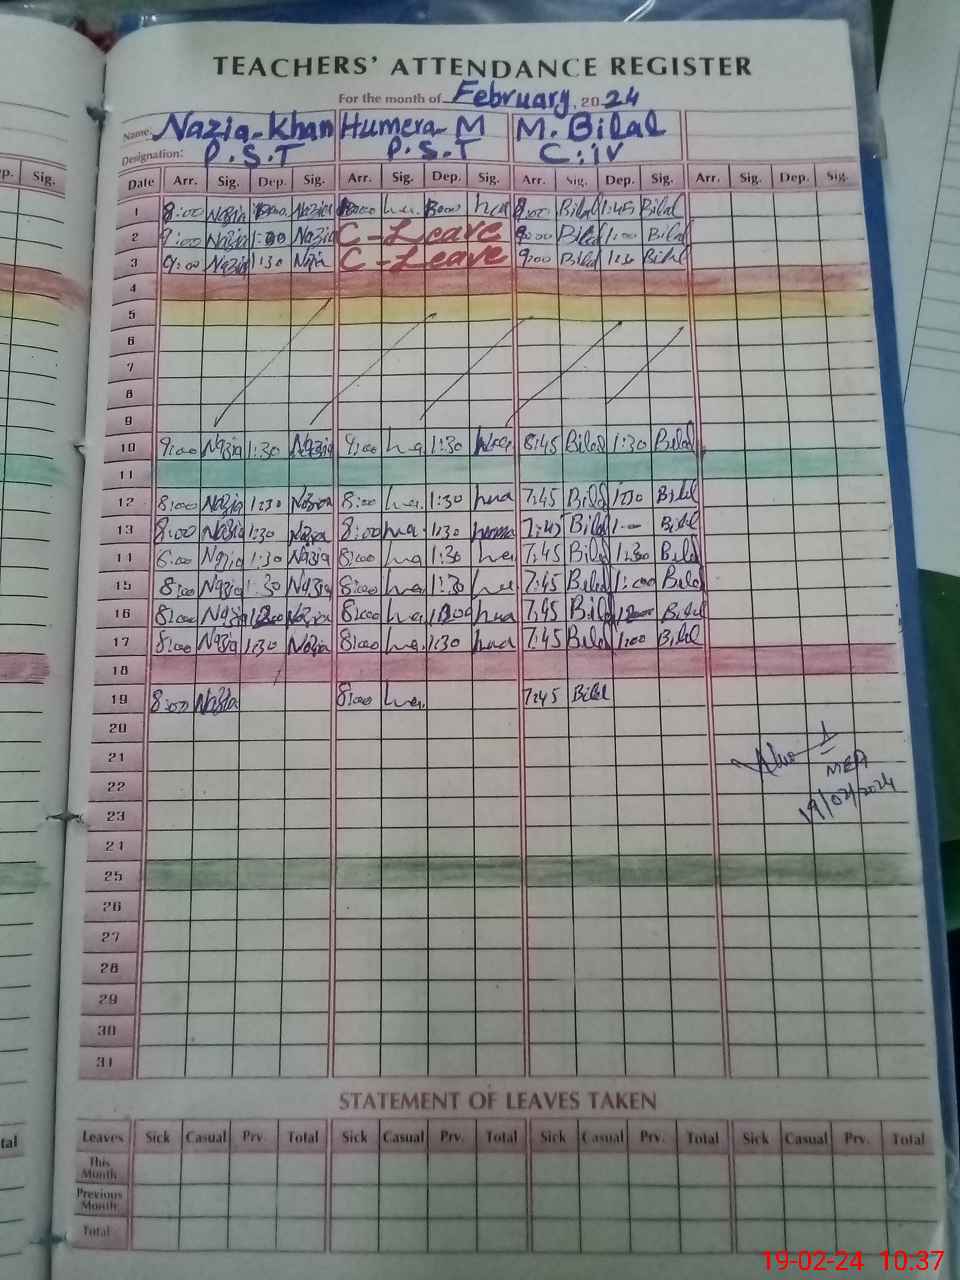 TEACHERS' ATTENDANCE REGISTER
For the month of February, 2024
Name: Nazia Khan Humera M M. Bilal
Designation: P.S.T P.S.T C.iv
p. Sig. Date Arr. Sig. Dep. Sig. Arr. Sig. Dep. Sig. Arr. Sig. Dep. Sig. Arr. Sig. Dep. Sig.
1 8:00 Nazia Nazia 8:00 Bilal 1:45 Bilal
2 9:00 Nazia 1:00 Nazia C-Leave 9:00 Bilal 1:00 Bilal
3 9:00 Nazia 1:30 Nazia C-Leave 9:00 Bilal 1:30 Bilal
4
5
6
7
8
9
10 9:00 Nazia 1:30 Nazia 9:00 1:30 8:45 Bilal 1:30 Bilal
11
12 8:00 Nazia 1:30 Nazia 8:00 1:30 7:45 Bilal 1:30 Bilal
13 8:00 Nazia 1:30 Nazia 8:00 1:30 7:45 Bilal Bilal
14 8:00 Nazia 1:30 Nazia 8:00 1:30 7:45 Bilal 1:30 Bilal
15 8:00 Nazia 1:30 Nazia 8:00 1:30 7:45 Bilal 1:00 Bilal
16 8:00 Nazia Nazia 8:00 7:45 Bilal Bilal
17 8:00 Nazia 1:30 Nazia 8:00 1:30 7:45 Bilal 1:00 Bilal
18
19 8:00 Nazia 8:00 7:45 Bilal
20
21
22
MEA
23
19/02/2024
24
25
26
27
28
29
30
31
STATEMENT OF LEAVES TAKEN
tal Leaves Sick Casual Prv. Total Sick Casual Prv. Total Sick Casual Prv. Total Sick Casual Prv. Total
This Month
Previous Month
Total
19-02-24 10.37